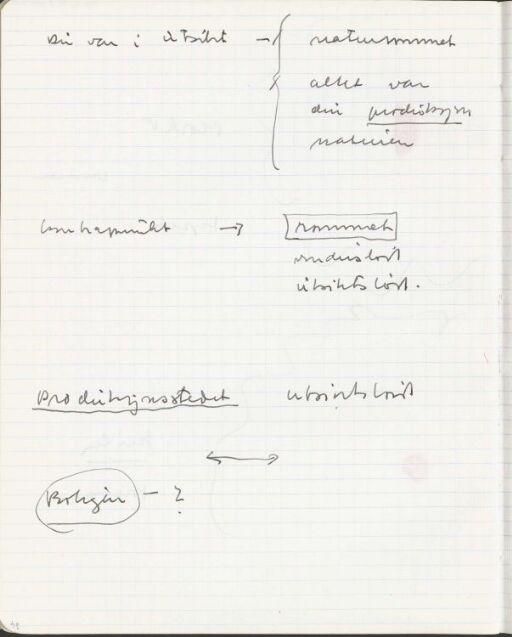 Du var i utsikt → naturrommet
alltid var
din produksjon
naturen
kontrapunkt → rommet
vindusløst
utsiktsløst.
Produksjonsstedet utsiktsløst
↔
Boligen – ?